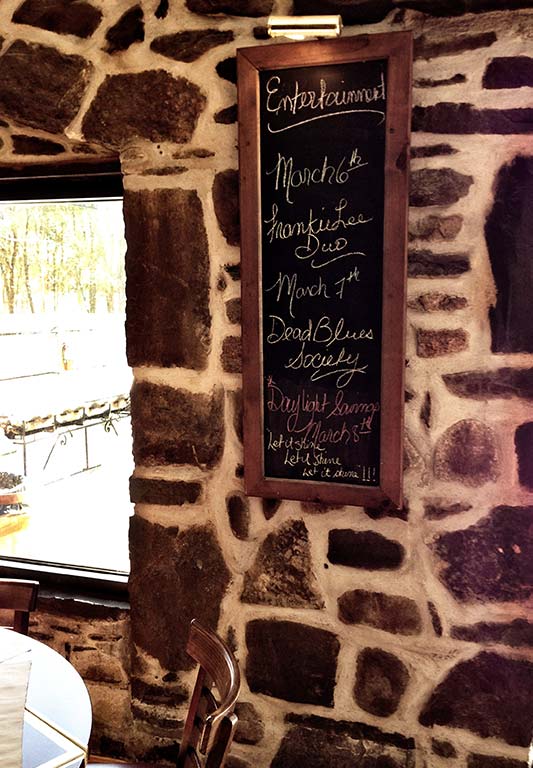 Entertainment
March 6th
Frankie Lee
Duo
March 7th
Dead Blues
Society
Daylight Savings
March 8th
"Let it Shine
Let it Shine
Let it shine"!!!